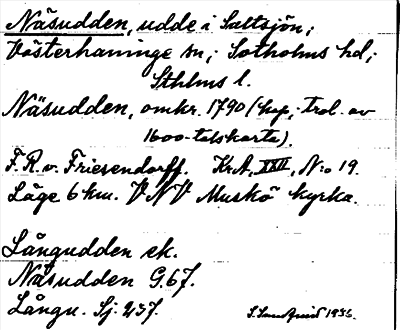 Näsudden, udde i Saltsjön;
Västerhaninge sn; Sotholms hd;
Sthlms l.
Näsudden, omkr. 1790 (kop., trol. av
1600-talskarta).
F.R.v. Friesendorff. Kr.A. XXII, N:o 19.
Läge 6 km. VNV Muskö kyrka.
Långudden ek.
Näsudden G.67.
Långu. Sj. 237.
1936.